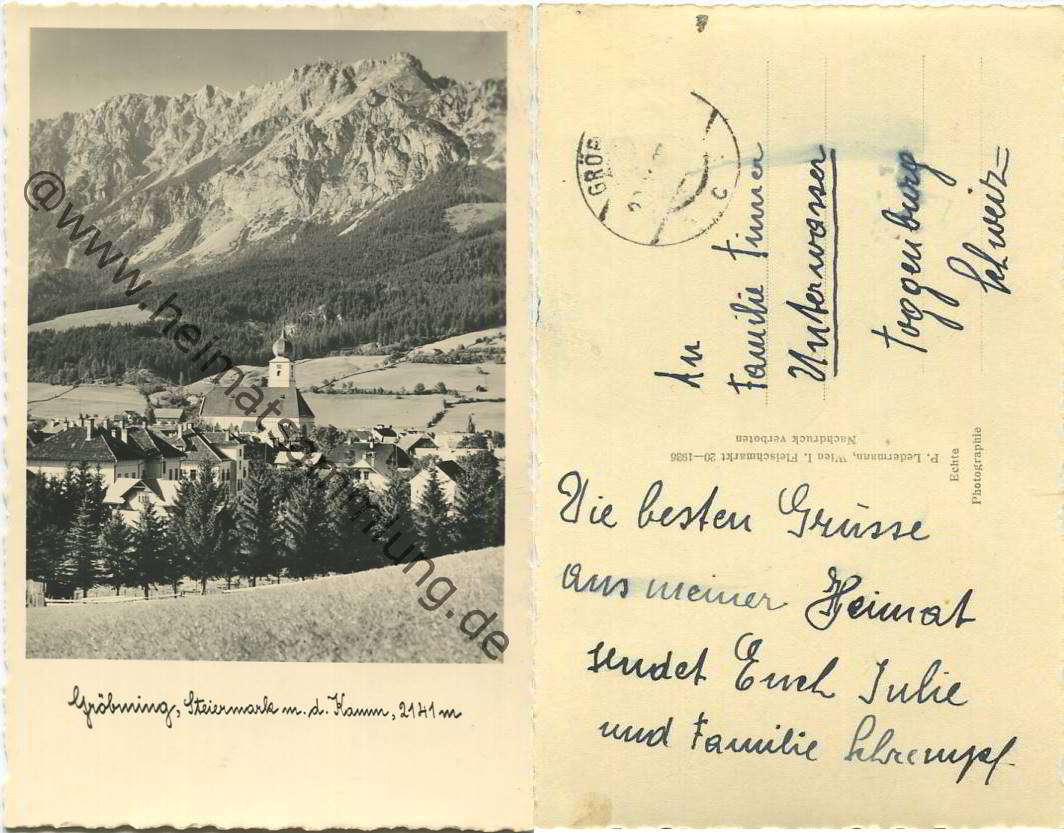 @www.heimatsammlung.de
Gröbming, Steiermark m. d. Kamm, 2141 m
GRÖB
c
An
Familie Timmer
Unterwasser
Toggenburg
Schweiz
P. Ledermann, Wien I. Fleischmarkt 20—1936
Nachdruck verboten
Echte
Photographie
Die besten Grüsse
aus meiner Heimat
sendet Euch Julie
und Familie Schrempf.